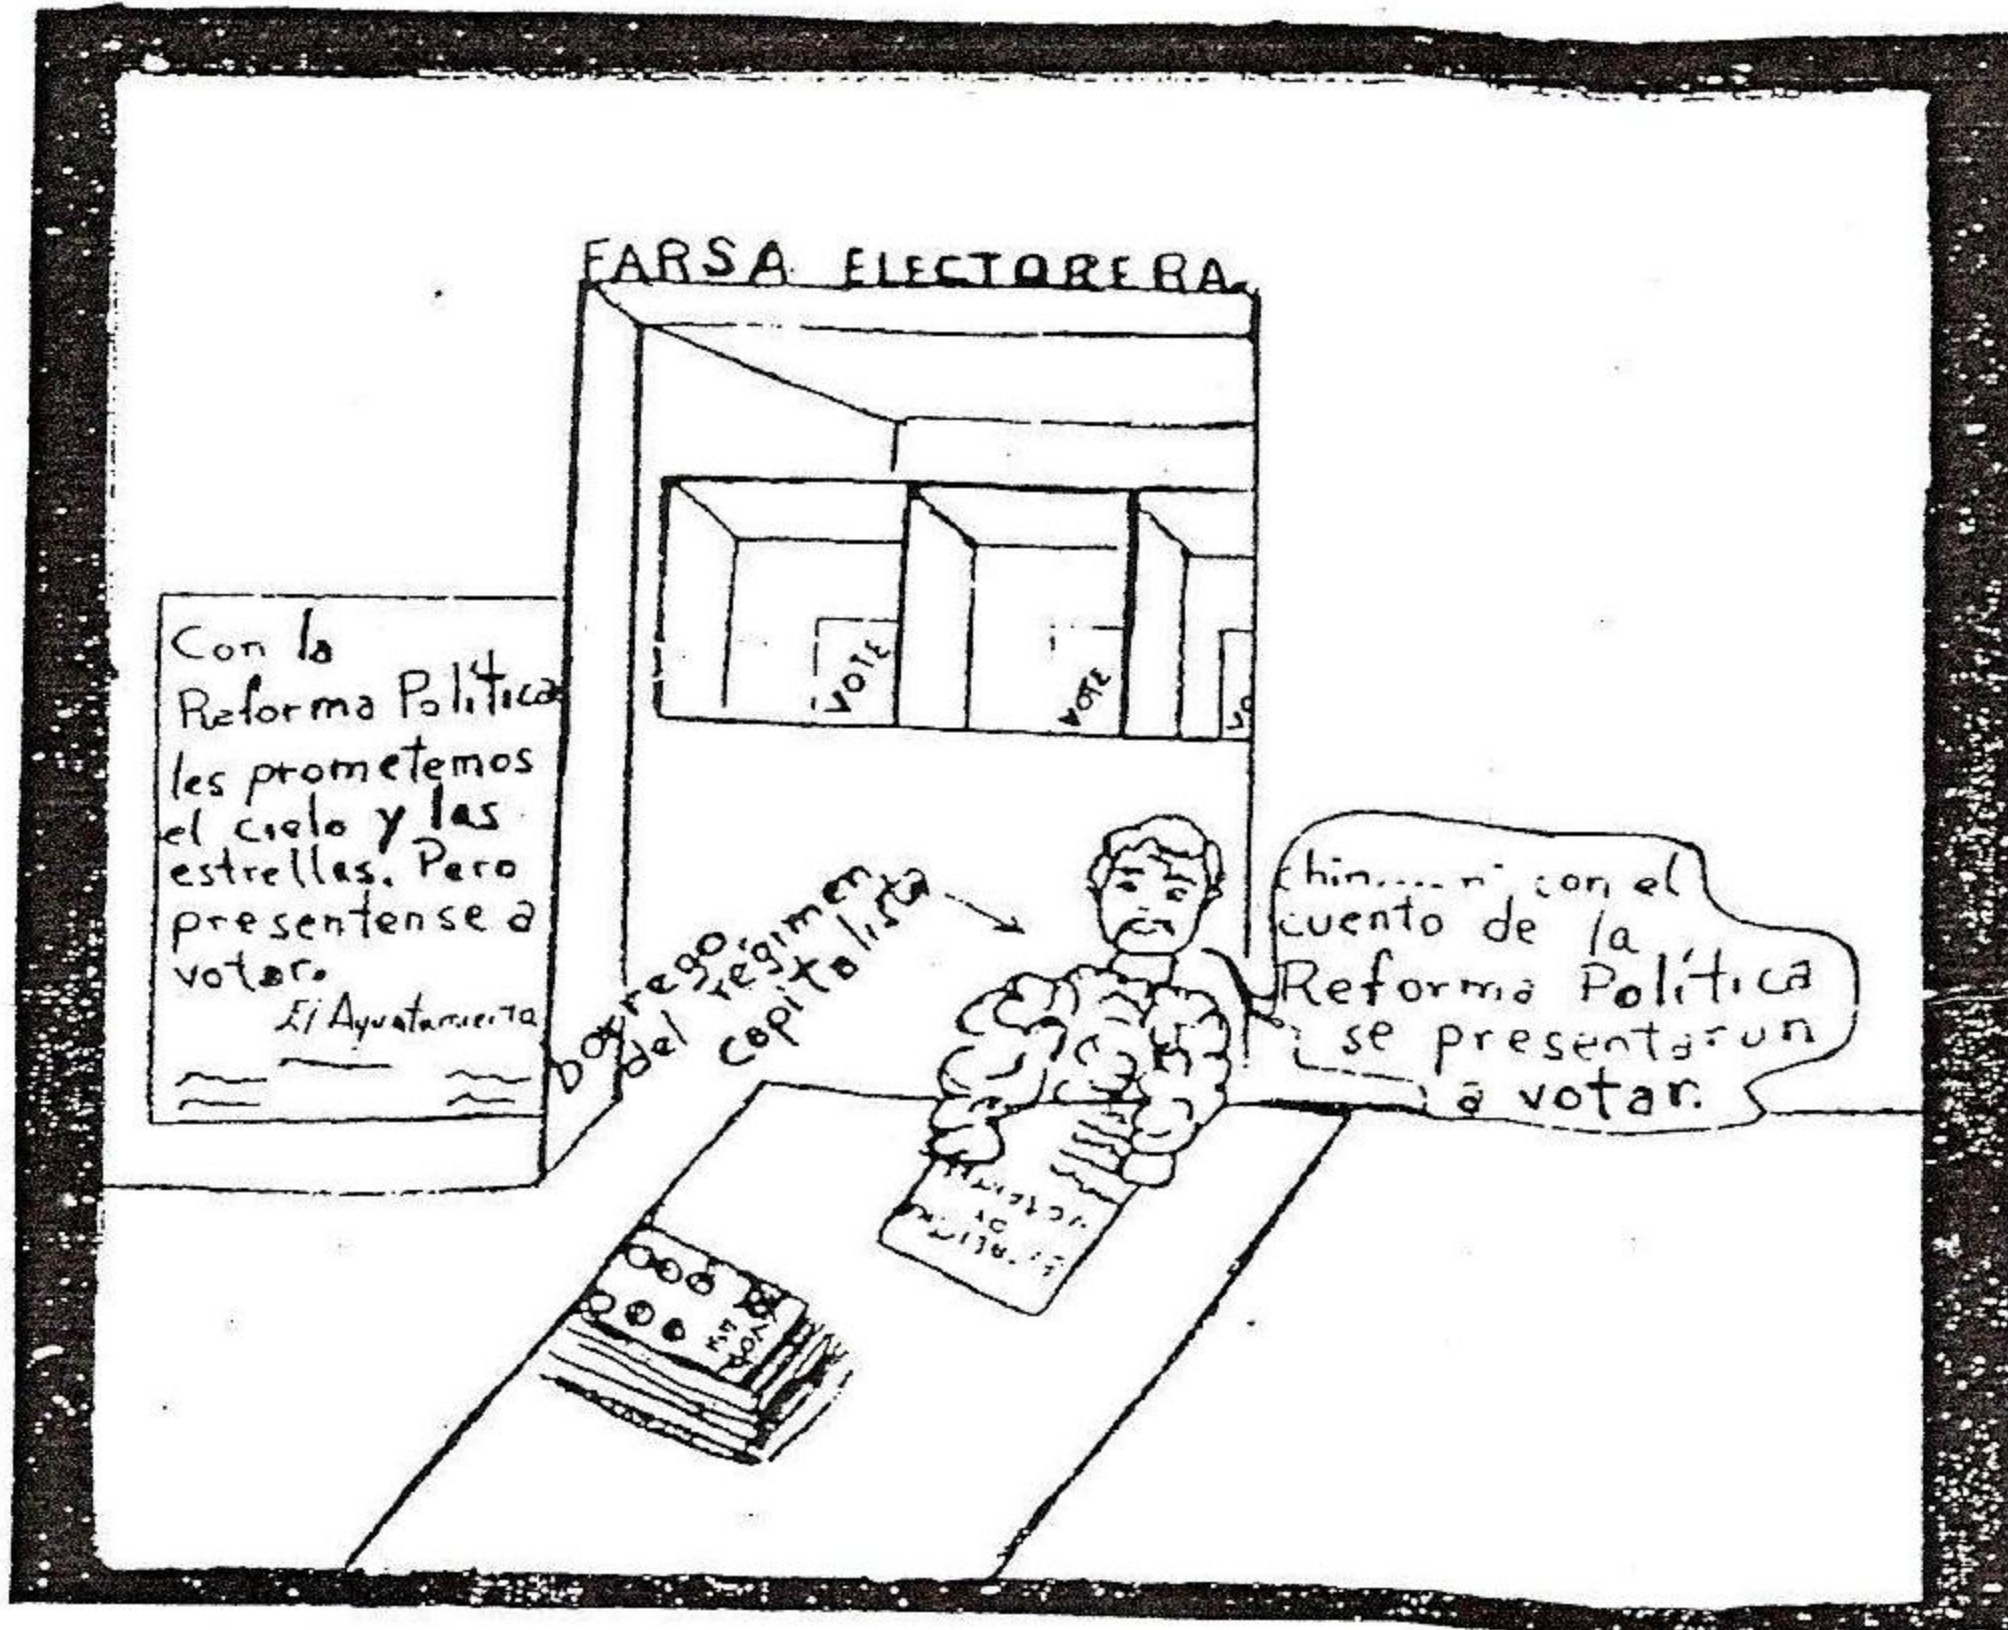 FARSA ELECTORERA
Con la
Reforma Política
les prometemos
el cielo y las
estrellas. Pero
presentense a
votar.
El Ayuntamiento
VOTE
VOTE
VO
Borrego
del régimen
capitalista
chin.... ni con el
cuento de la
Reforma Política
se presentarun
a votar.